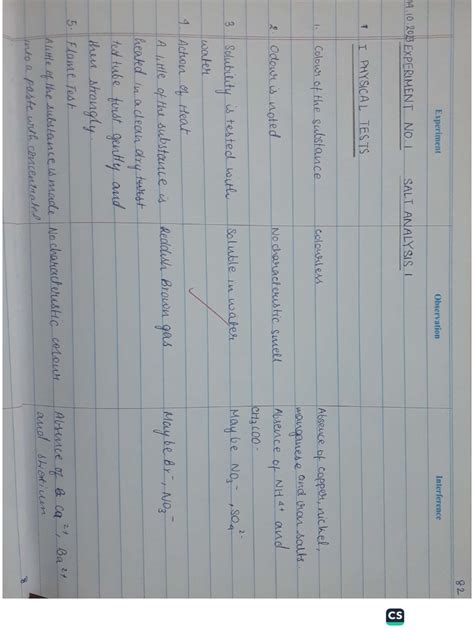 82
Experiment Observation Interference
10.2023 EXPERIMENT NO. 1 SALT ANALYSIS 1
I PHYSICAL TESTS
1. Colour of the substance colourless Absence of copper, nickel,
manganese and iron salts.
2 Odour is noted No characteristic smell Absence of NH4+ and
CH3COO-
3 Solubility is tested with Soluble in water May be NO3-, SO4 2-
water
4 Action of Heat
A little of the substance is Reddish Brown gas May be Br-, NO3-
heated in a clean dry test
ted tube first gently and
then strongly
5. Flame Test
A little of the substance is made No characteristic colour Absence of Ca2+, Ba2+
into a paste with concentrated and strontium
CS